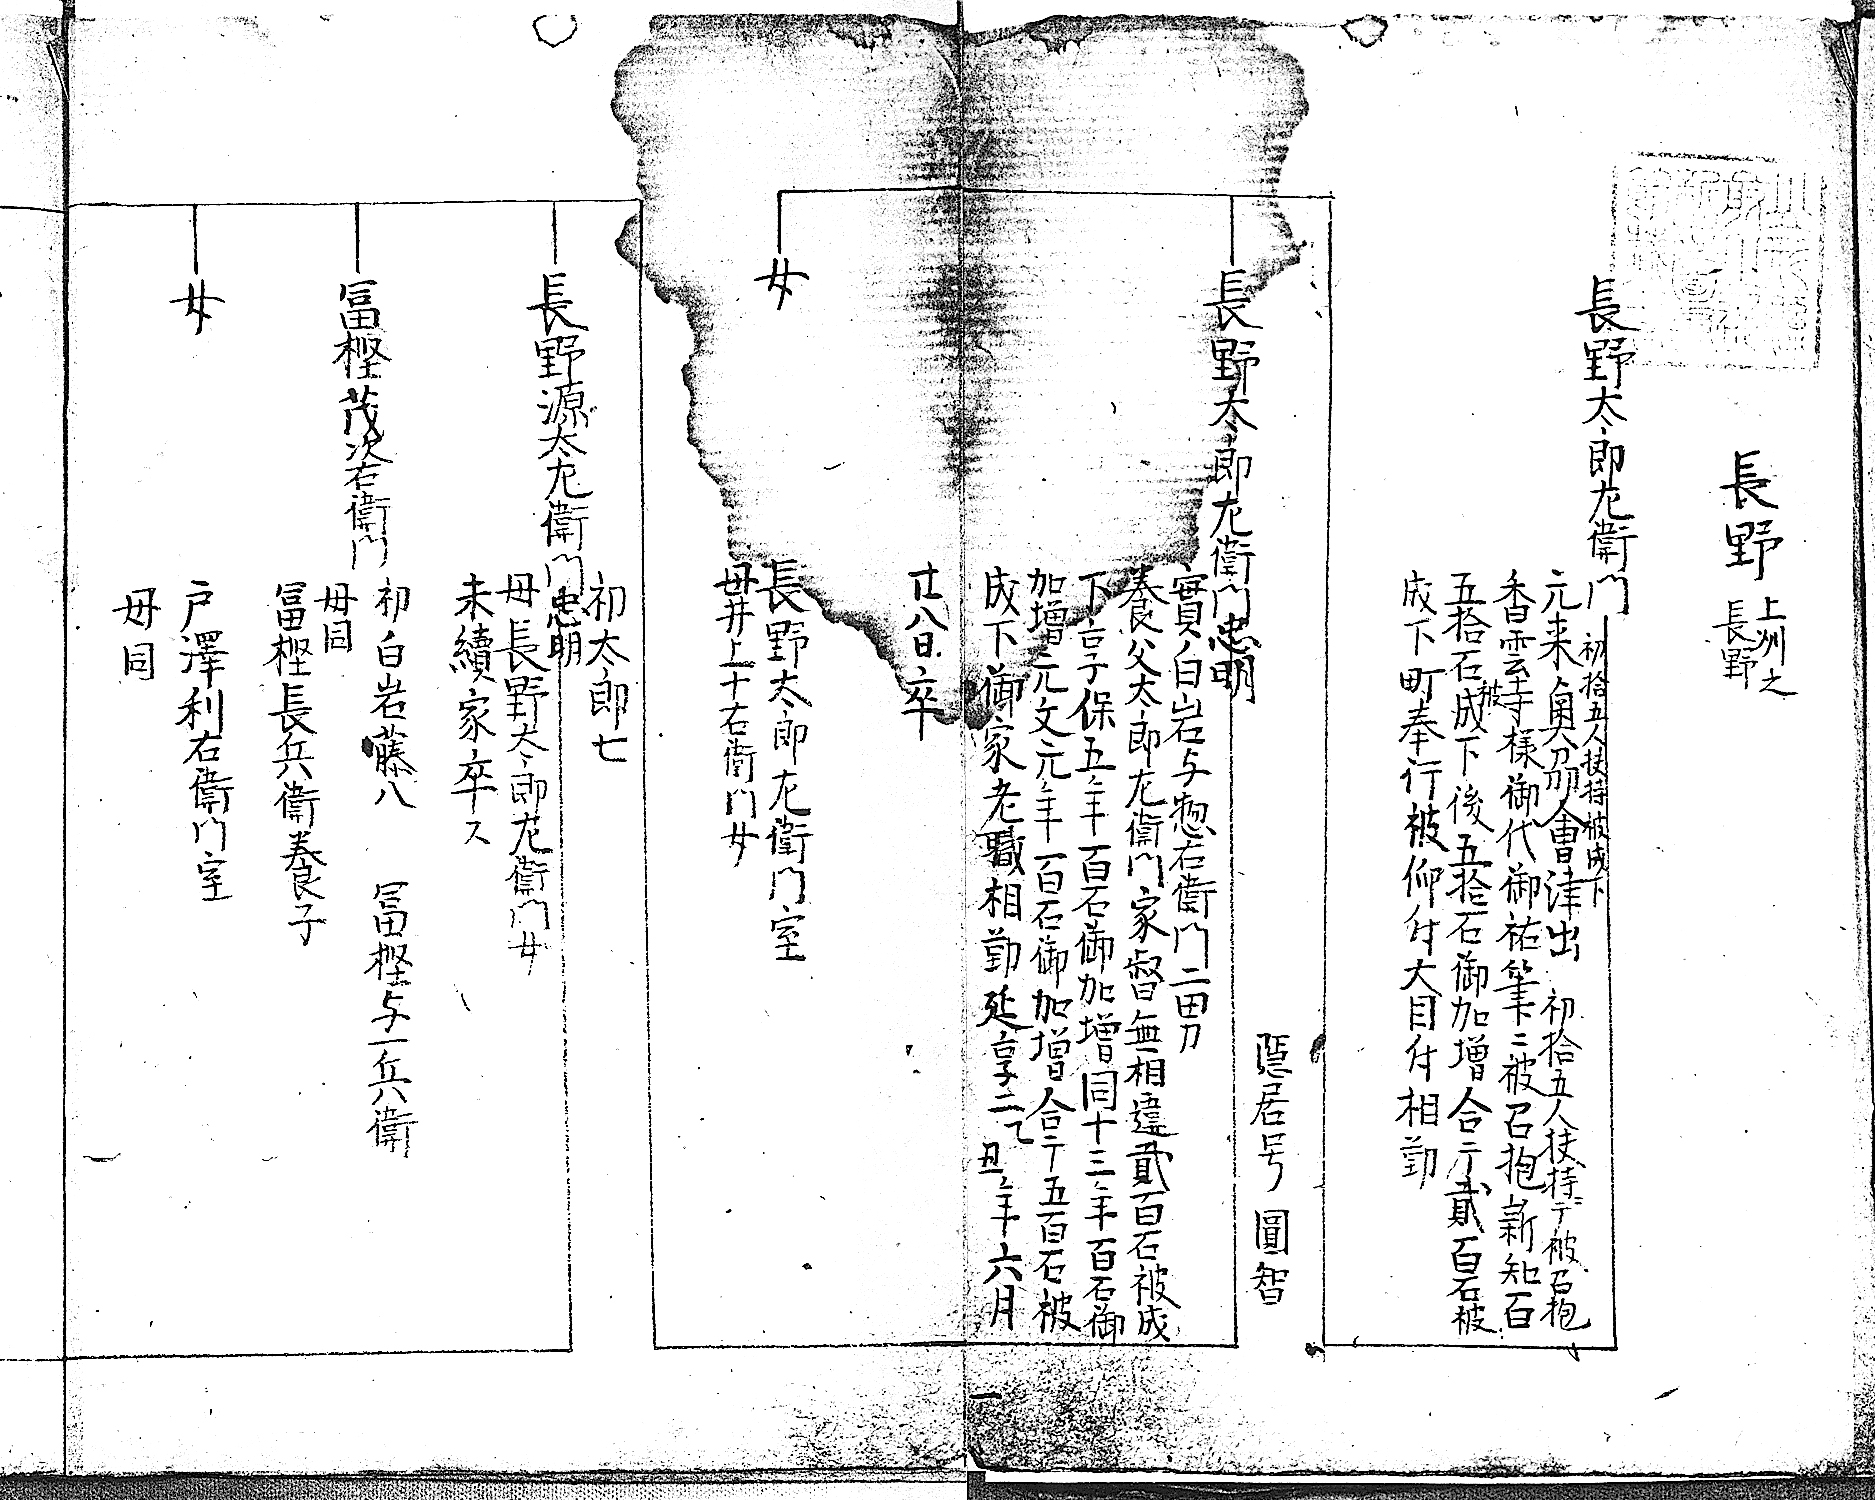 長野 上州之
長野
長野太郎左衛門
初拾五人扶持被成下
元来奥刕會津出 初拾五人扶持ニテ被召抱
香雲寺様御代御祐筆ニ被召抱新知百
五拾石被成下後五拾石御加増合テ貳百石被
成下町奉行被仰付大目付相勤
隠居号 圓智
長野太郎左衛門忠明
實白岩与惣右衛門二男
養父太郎左衛門家督無相違貳百石被成
下享保五年一百石御加増同十三年百石御
加増元文元年一百石御加増合テ五百石被
成下御家老職相勤延享二乙丑年六月
廿八日卒
女
長野太郎左衛門室
母井上十右衛門女
長野源太左衛門忠明
初太郎七
母長野太郎左衛門女
未續家卒ス
冨樫茂次右衛門
初白岩藤八 冨樫与一兵衛
母同
冨樫長兵衛養子
女
戸澤利右衛門室
母同